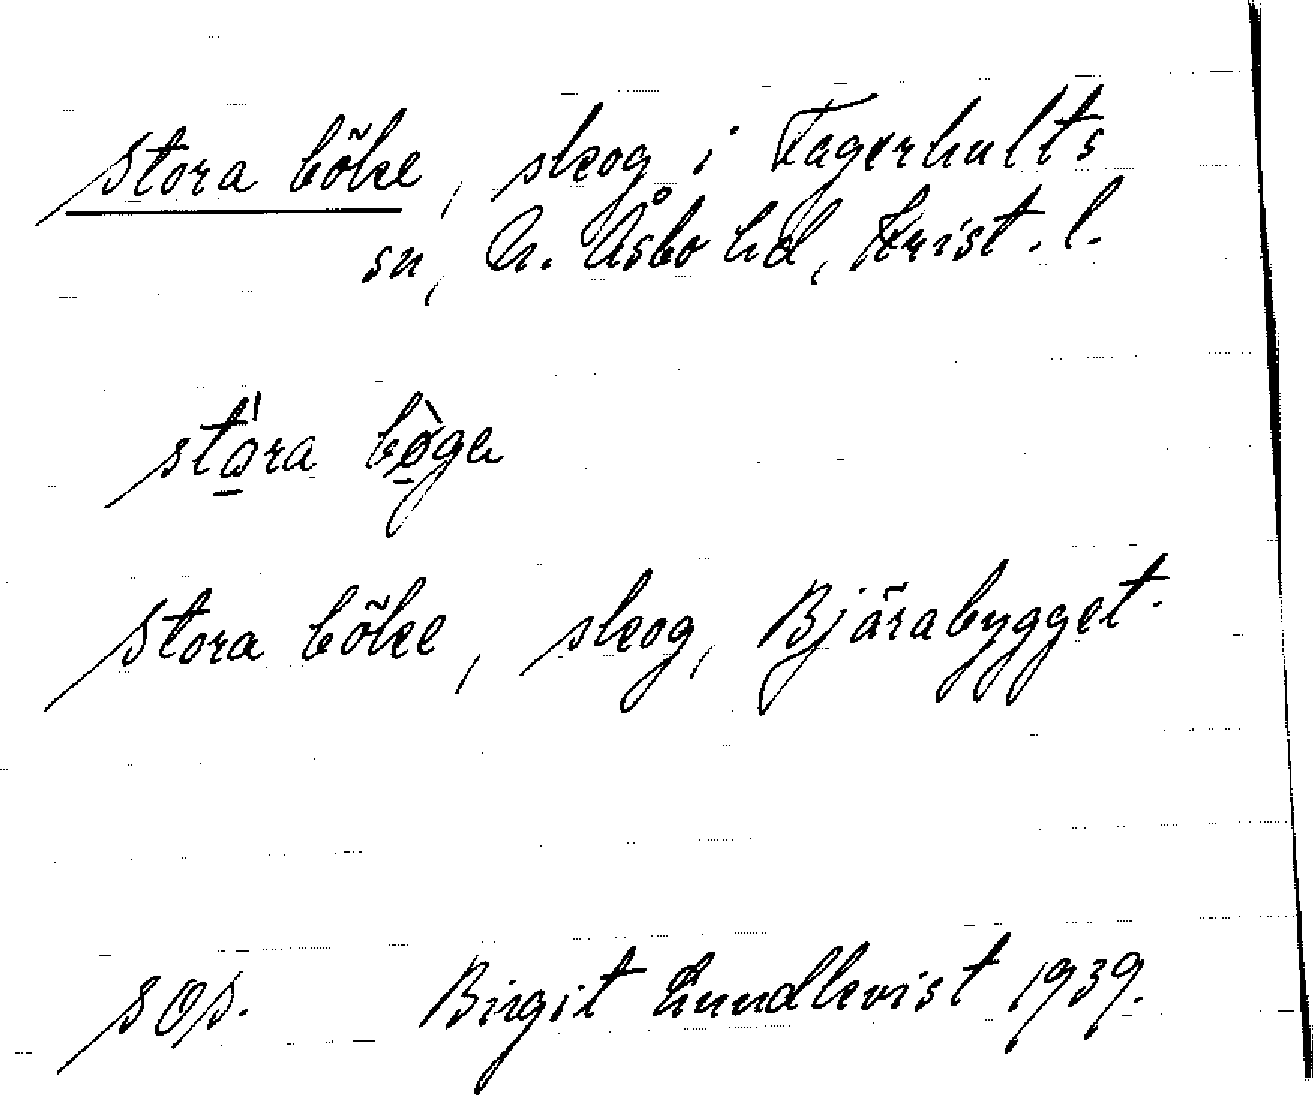 Stora böke, skog i Fagerhults
sn, N. Åsbo hd, Krist. l.
sto̲ra bø̲̀ge
Stora böke, skog, Bjärabygget.
Birgit Lundkvist 1939.